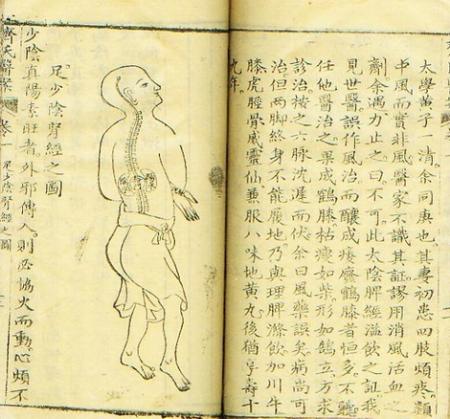 太學黃子一清余同庚也其妻初患四肢煩疼類
中風而實非風醫家不識其証謬用消風活血之
劑余遇力止之曰不可此太陰脾經溢飲之証我
見世醫誤作風治而釀成痿癱鶴膝者恒多不聽
任他醫治之果成鶴膝枯瘦如柴形如鵠立方求
診治按之六脉沈遲而伏余曰風藥誤矣病尚可
治但兩脚終身不能履地乃與理脾滌飲加川牛
膝虎脛骨威靈仙兼服八味地黃丸後猶享壽十
九年
足少陰腎經之圖
少陰真陽素旺者外邪傳入則必協火而動心煩不
齊氏醫案 卷一 足少陰腎經之圖